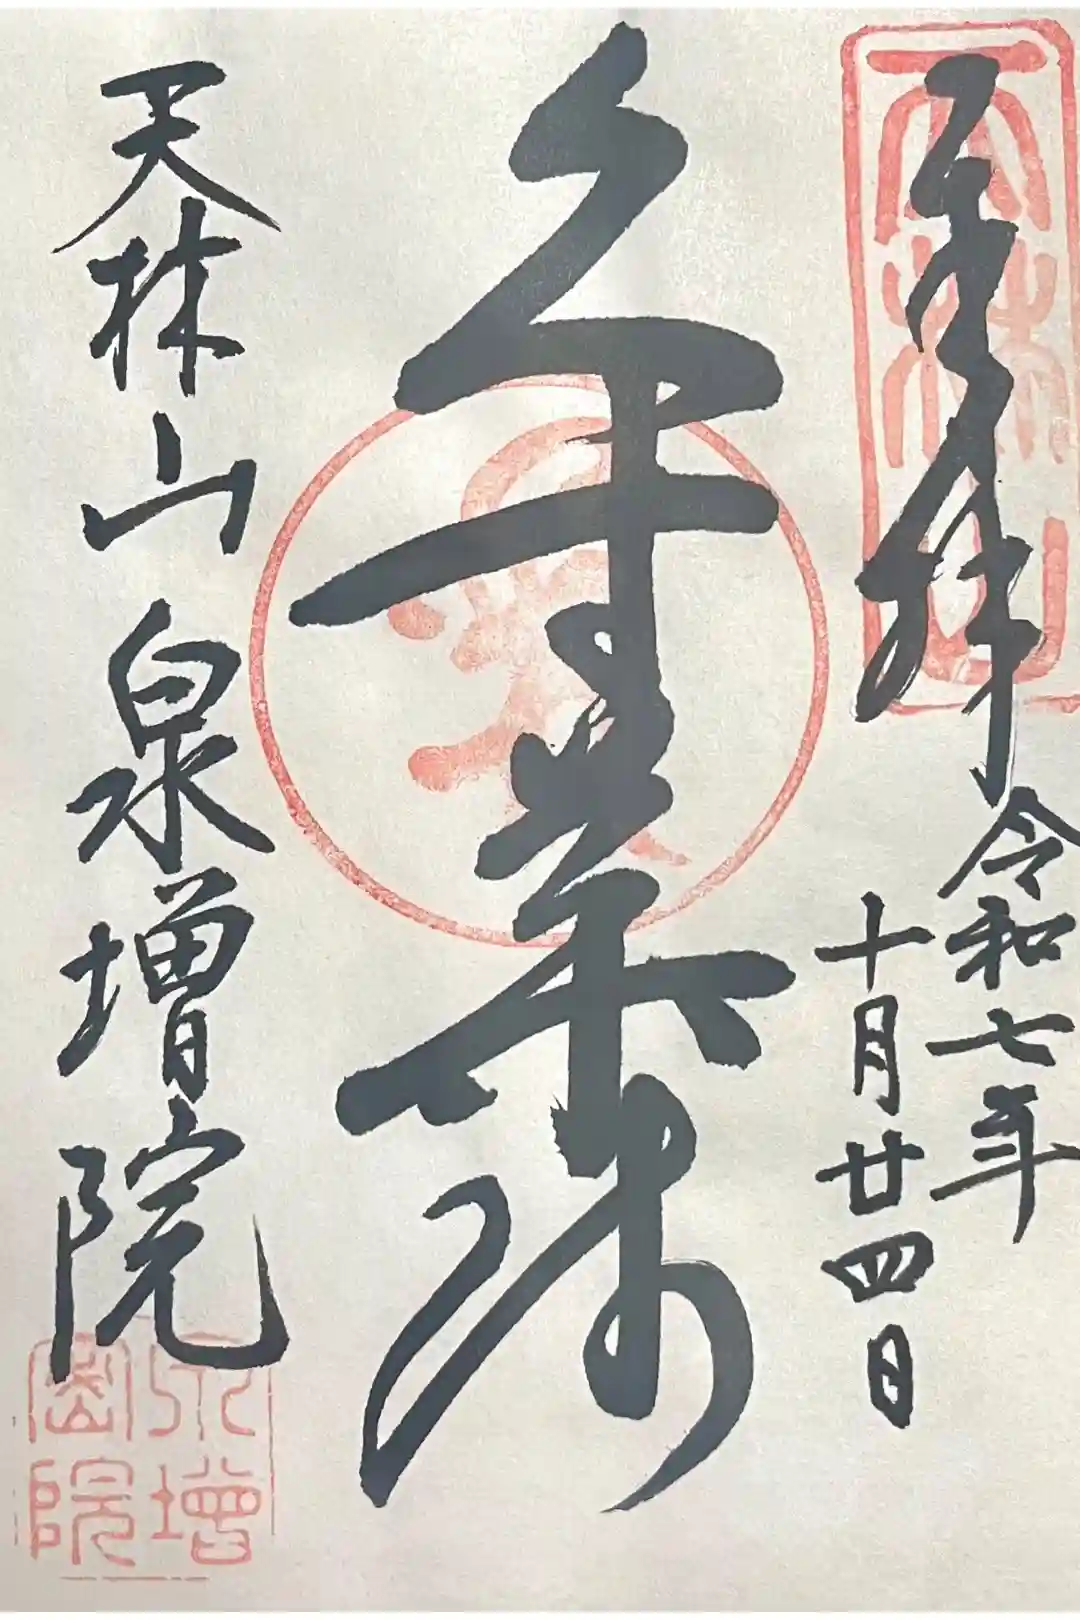 奉拝
天林山
令和七年
十月廿四日
薬師
天林山泉増院
泉増
院